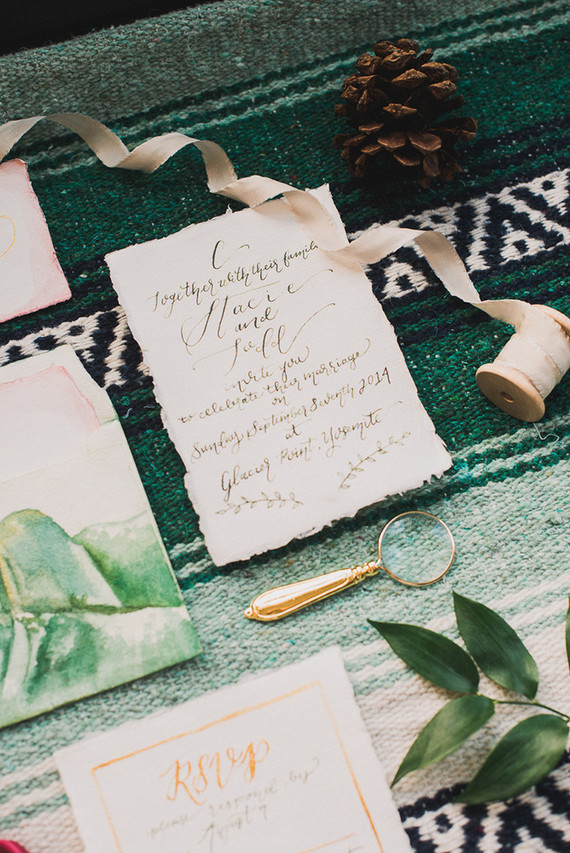 Together with their families
Stacie
and
Todd
invite you
to celebrate their marriage
on
Sunday September Seventh 2014
at
Glacier Point, Yosemite
RSVP
please respond by
August 4